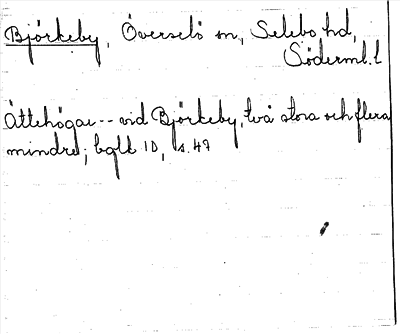 Björkeby, Överselö sn, Selebo hd,
Söderml. l
Ättehögar -- vid Björkeby, två stora och flera
mindre; bglk 10, s. 49